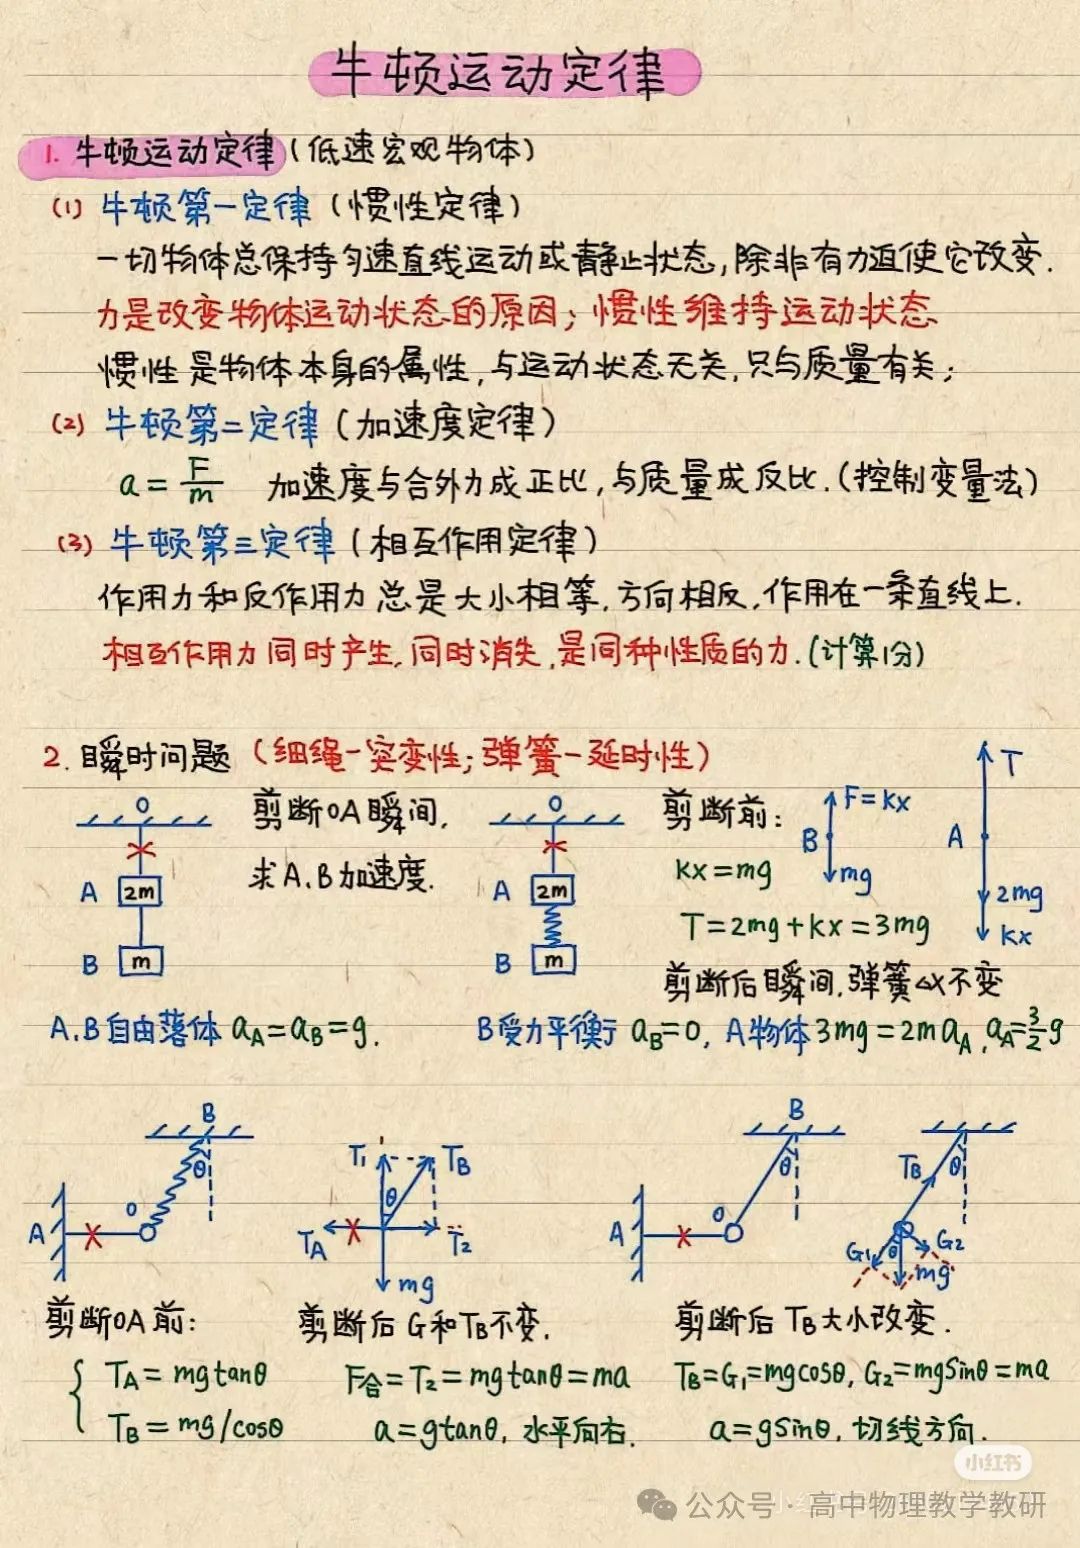 牛顿运动定律
1. 牛顿运动定律(低速宏观物体)
(1) 牛顿第一定律(惯性定律)
一切物体总保持匀速直线运动或静止状态,除非有力迫使它改变.
力是改变物体运动状态的原因;惯性维持运动状态
惯性是物体本身的属性,与运动状态无关,只与质量有关;
(2) 牛顿第二定律(加速度定律)
a=F/m 加速度与合外力成正比,与质量成反比.(控制变量法)
(3) 牛顿第三定律(相互作用定律)
作用力和反作用力总是大小相等,方向相反,作用在一条直线上.
相互作用力同时产生,同时消失,是同种性质的力.(计算1分)
2. 瞬时问题(细绳-突变性;弹簧-延时性)
O
A 2m
B m
剪断OA瞬间,
求A.B加速度.
A.B自由落体 aA=aB=g.
O
A 2m
B m
剪断前:
kx=mg
F=kx
B
mg
T
A
2mg
kx
T=2mg+kx=3mg
剪断后瞬间,弹簧△x不变
B受力平衡 aB=0, A物体3mg=2maA, aA=3/2g
B
θ
O
A
T1
TB
θ
TA
T2
mg
B
θ
O
A
TB
θ
G1
θ
G2
mg
剪断OA前:
TA=mgtanθ
TB=mg/cosθ
剪断后G和TB不变.
F合=T2=mgtanθ=ma
a=gtanθ, 水平向右.
剪断后TB大小改变.
TB=G1=mgcosθ, G2=mgsinθ=ma
a=gsinθ, 切线方向.
小红书
公众号·高中物理教学教研